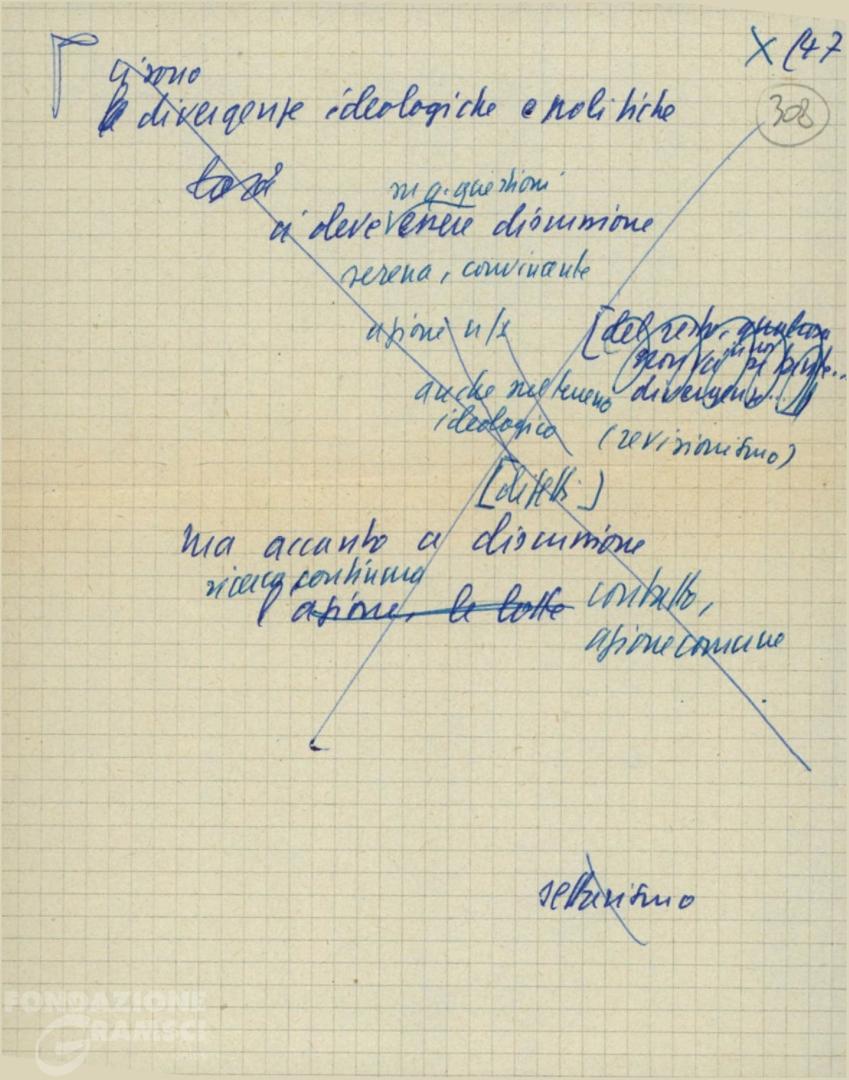 X (47
308
ci sono
le divergenze ideologiche e politiche
su q. questioni
ci deve essere discussione
serena, convincente
azione
[del resto, qualcosa
divergenze...]
anche sul terreno
ideologico
(revisionismo)
[difetti]
ma accanto a discussione
ricerca continua
azione, le lotte contatto,
azione comune
settarismo
FONDAZIONE
GRAMSCI